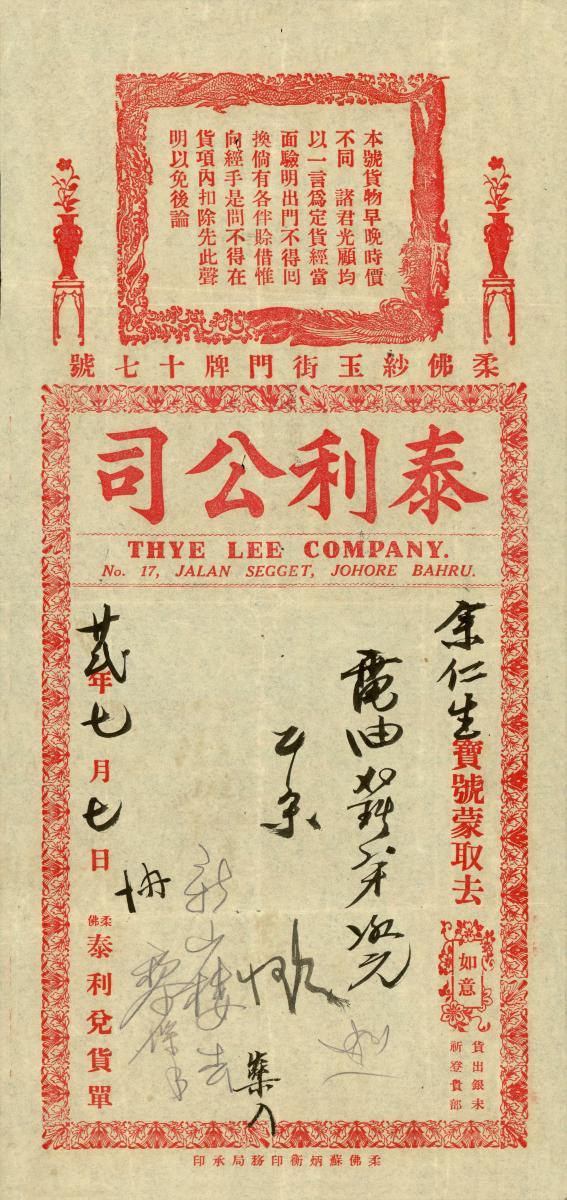 本號貨物早晚時價
不同　諸君光顧均
以一言爲定貨經當
面驗明出門不得回
換倘有各伴賒借惟
向經手是問不得在
貨項內扣除先此聲
明以免後論
柔佛紗玉街門牌十七號
泰利公司
THYE LEE COMPANY.
No. 17, JALAN SEGGET, JOHORE BAHRU.
余仁生寶號蒙取去
如意
貨出銀未
祈登貴部
電油
新山樓去
廿弍年七月七日
柔佛
泰利兌貨單
柔佛蘇炳衡印務局承印